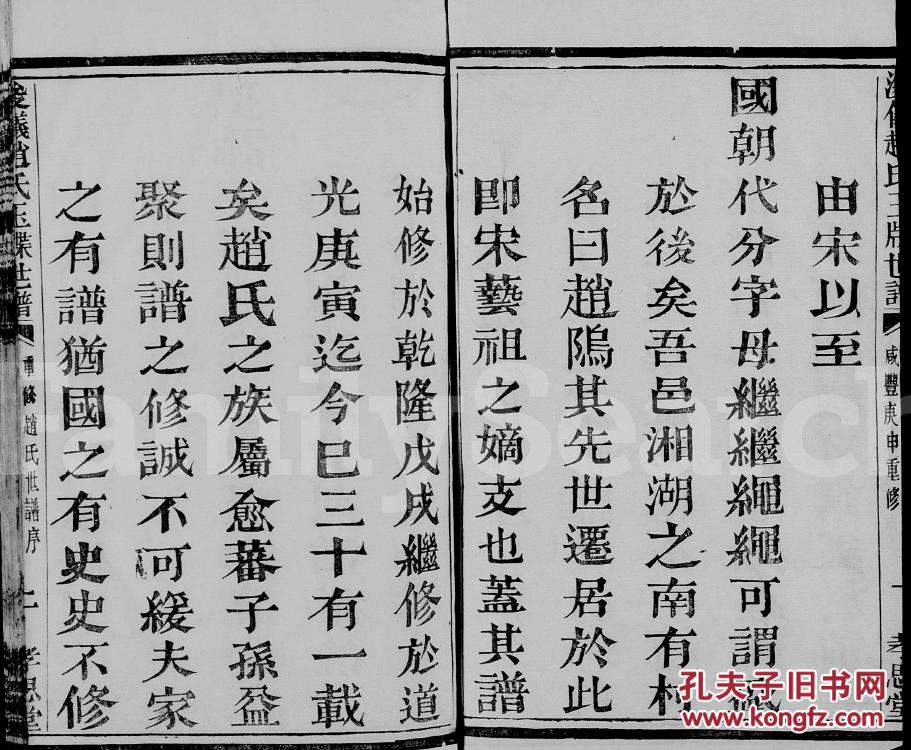 由宋以至
國朝代分字母繼繼繩繩可謂
於後矣吾邑湘湖之南有村
名曰趙隖其先世遷居於此
即宋藝祖之嫡支也蓋其譜
始修於乾隆戊戌繼修於道
光庚寅迄今已三十有一載
矣趙氏之族屬愈蕃子孫益
聚則譜之修誠不可緩夫家
之有譜猶國之有史史不修
咸豐庚申重修
孝思堂
浚儀趙氏玉牒世譜
重修趙氏世譜序
二
孝思堂
FamilySearch
孔夫子旧书网
www.kongfz.com